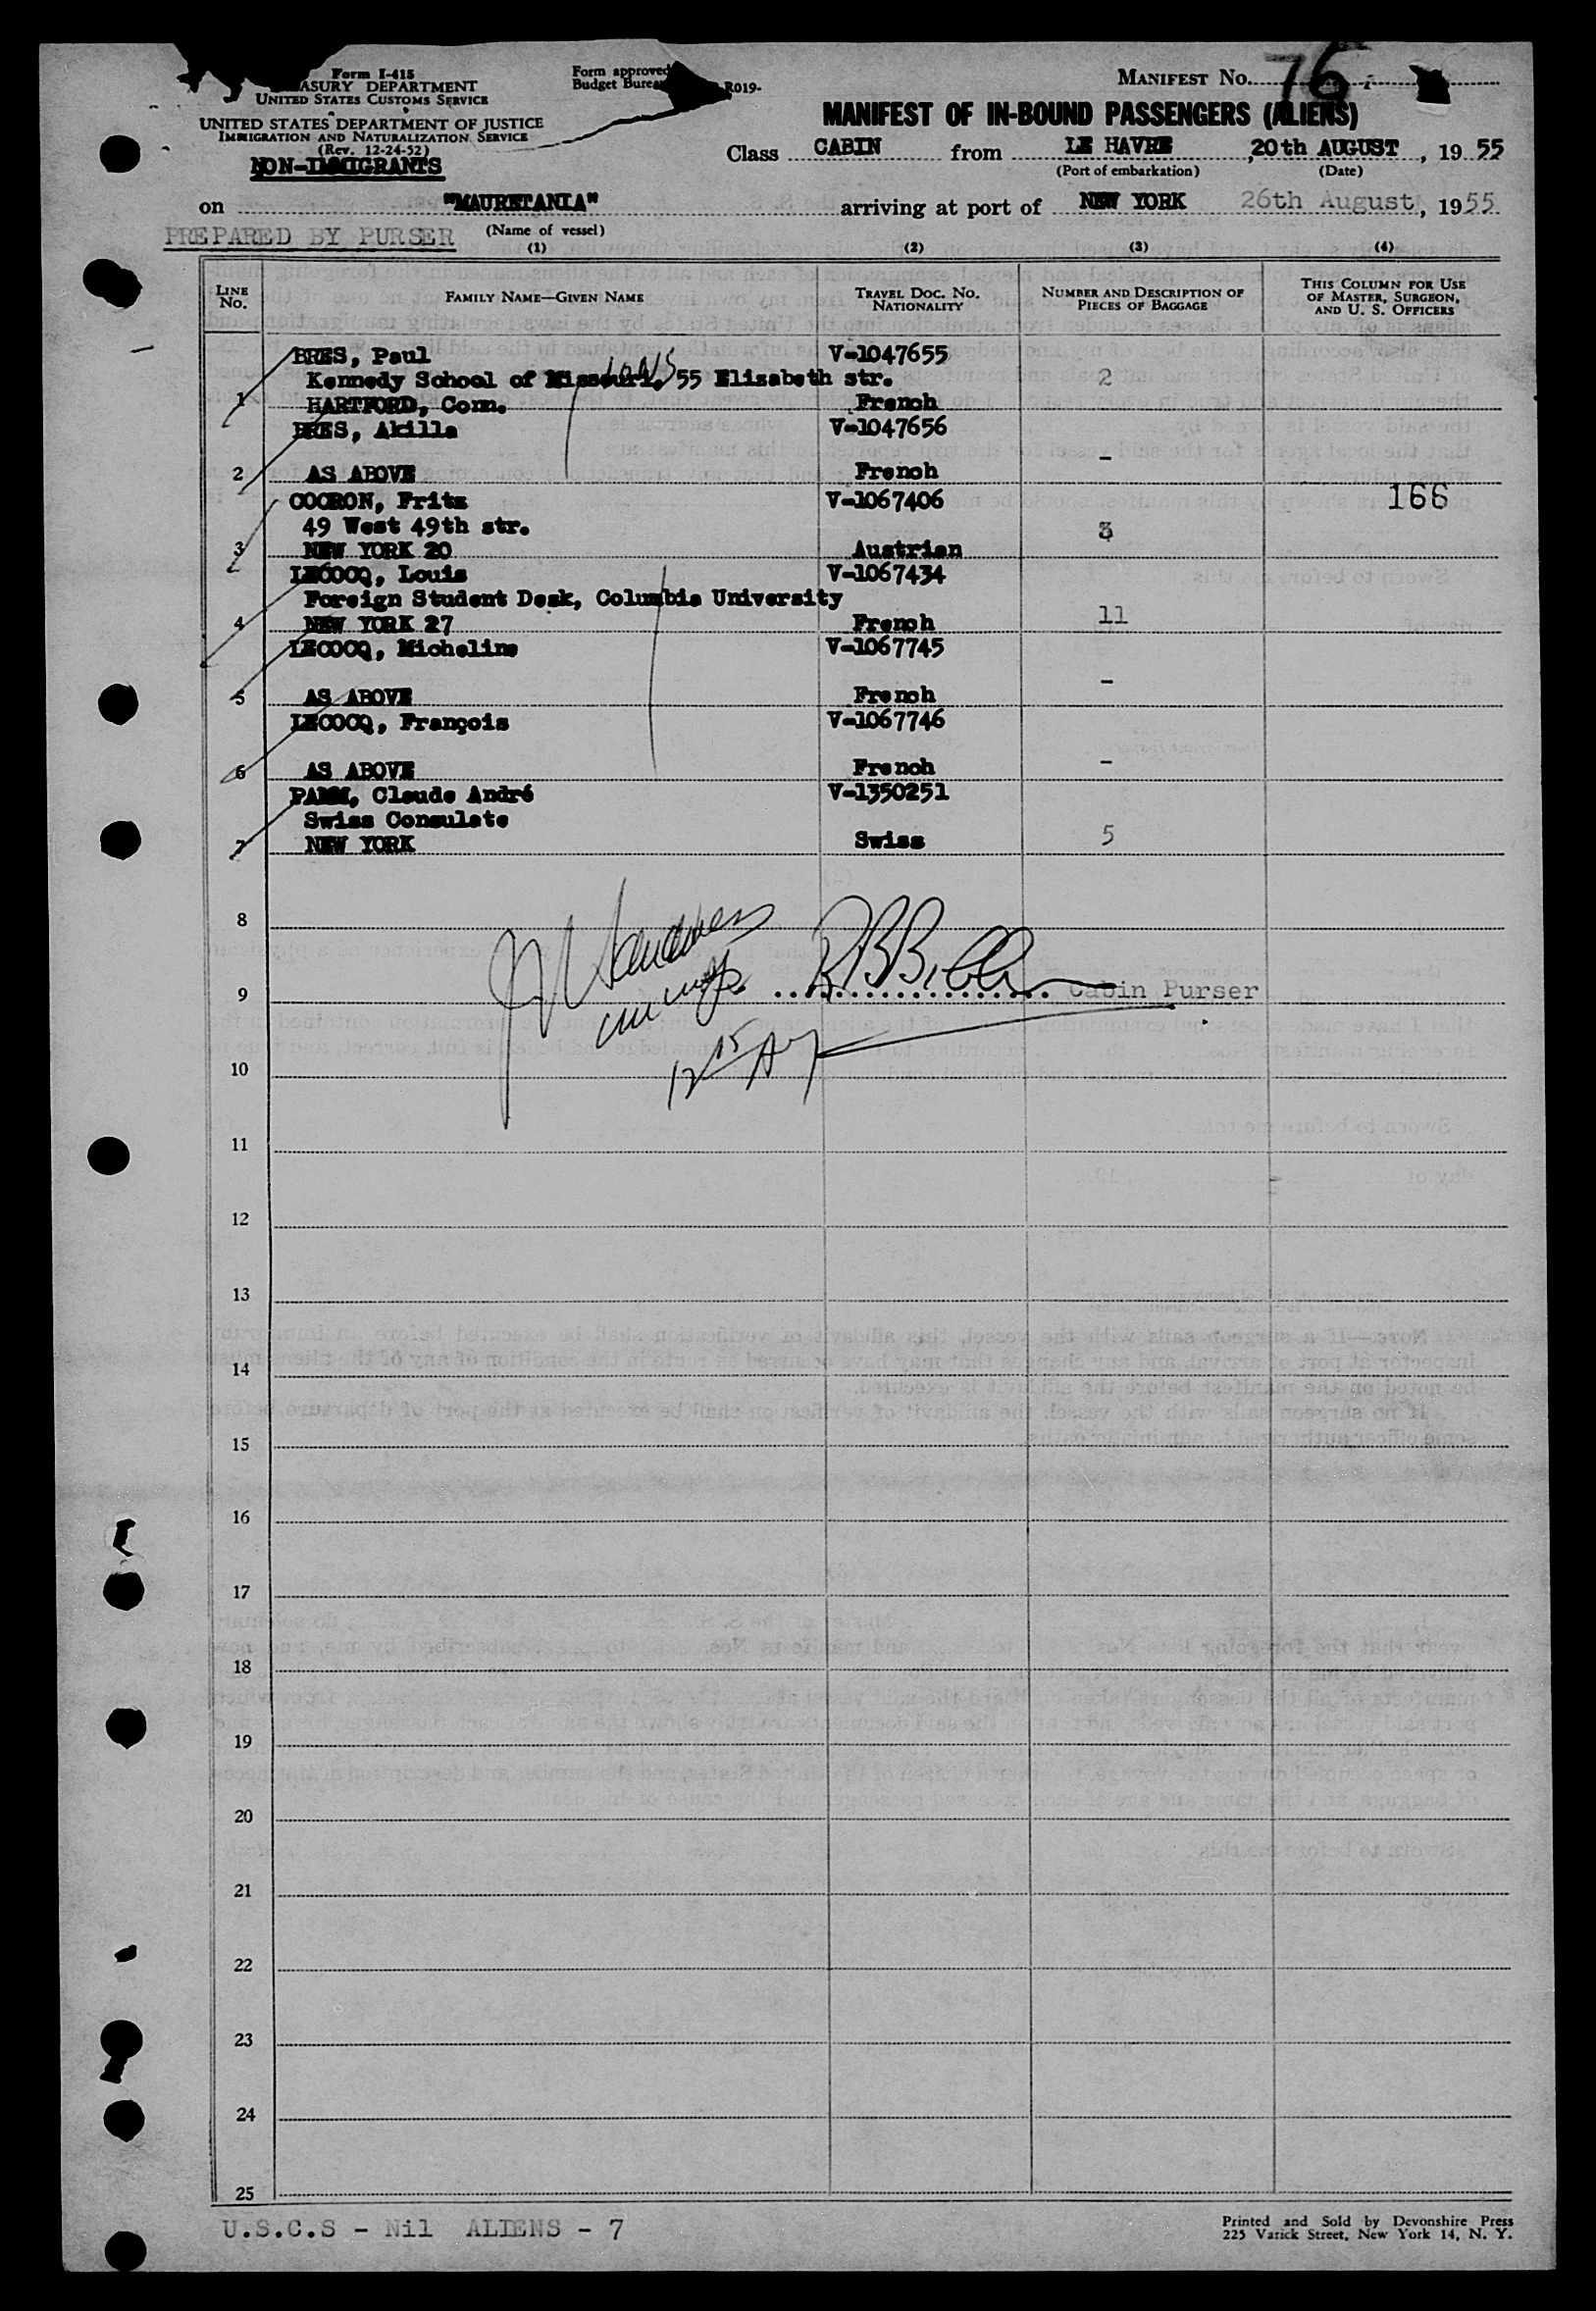 Form I-415
ASURY DEPARTMENT
UNITED STATES CUSTOMS SERVICE
UNITED STATES DEPARTMENT OF JUSTICE
IMMIGRATION AND NATURALIZATION SERVICE
(Rev. 12-24-52)
NON-IMMIGRANTS
Form approved
Budget Burea R019-
MANIFEST No. 76
MANIFEST OF IN-BOUND PASSENGERS (ALIENS)
Class CABIN from LE HAVRE, 20th AUGUST, 1955
(Port of embarkation) (Date)
on "MAURETANIA" arriving at port of NEW YORK 26th August, 1955
PREPARED BY PURSER (Name of vessel)
(1) (2) (3) (4)
LINE No. FAMILY NAME—GIVEN NAME TRAVEL DOC. No. NATIONALITY NUMBER AND DESCRIPTION OF PIECES OF BAGGAGE THIS COLUMN FOR USE OF MASTER, SURGEON, AND U. S. OFFICERS
BRES, Paul V-1047655
Kennedy School of Missouri, 55 Elizabeth str. 2
1 HARTFORD, Conn. French
BRES, Akilla V-1047656
2 AS ABOVE French -
COCRON, Fritz V-1067406 166
49 West 49th str. 3
3 NEW YORK 20 Austrian
LECOCQ, Louis V-1067434
Foreign Student Desk, Columbia University 11
4 NEW YORK 27 French
LECOCQ, Micheline V-1067745
5 AS ABOVE French -
LECOCQ, François V-1067746
6 AS ABOVE French -
PAHM, Claude André V-1350251
Swiss Consulate
7 NEW YORK Swiss 5
8
9 Cabin Purser
10
11
12
13
14
15
16
17
18
19
20
21
22
23
24
25
U.S.C.S - Nil ALIENS - 7
Printed and Sold by Devonshire Press
225 Varick Street, New York 14, N. Y.